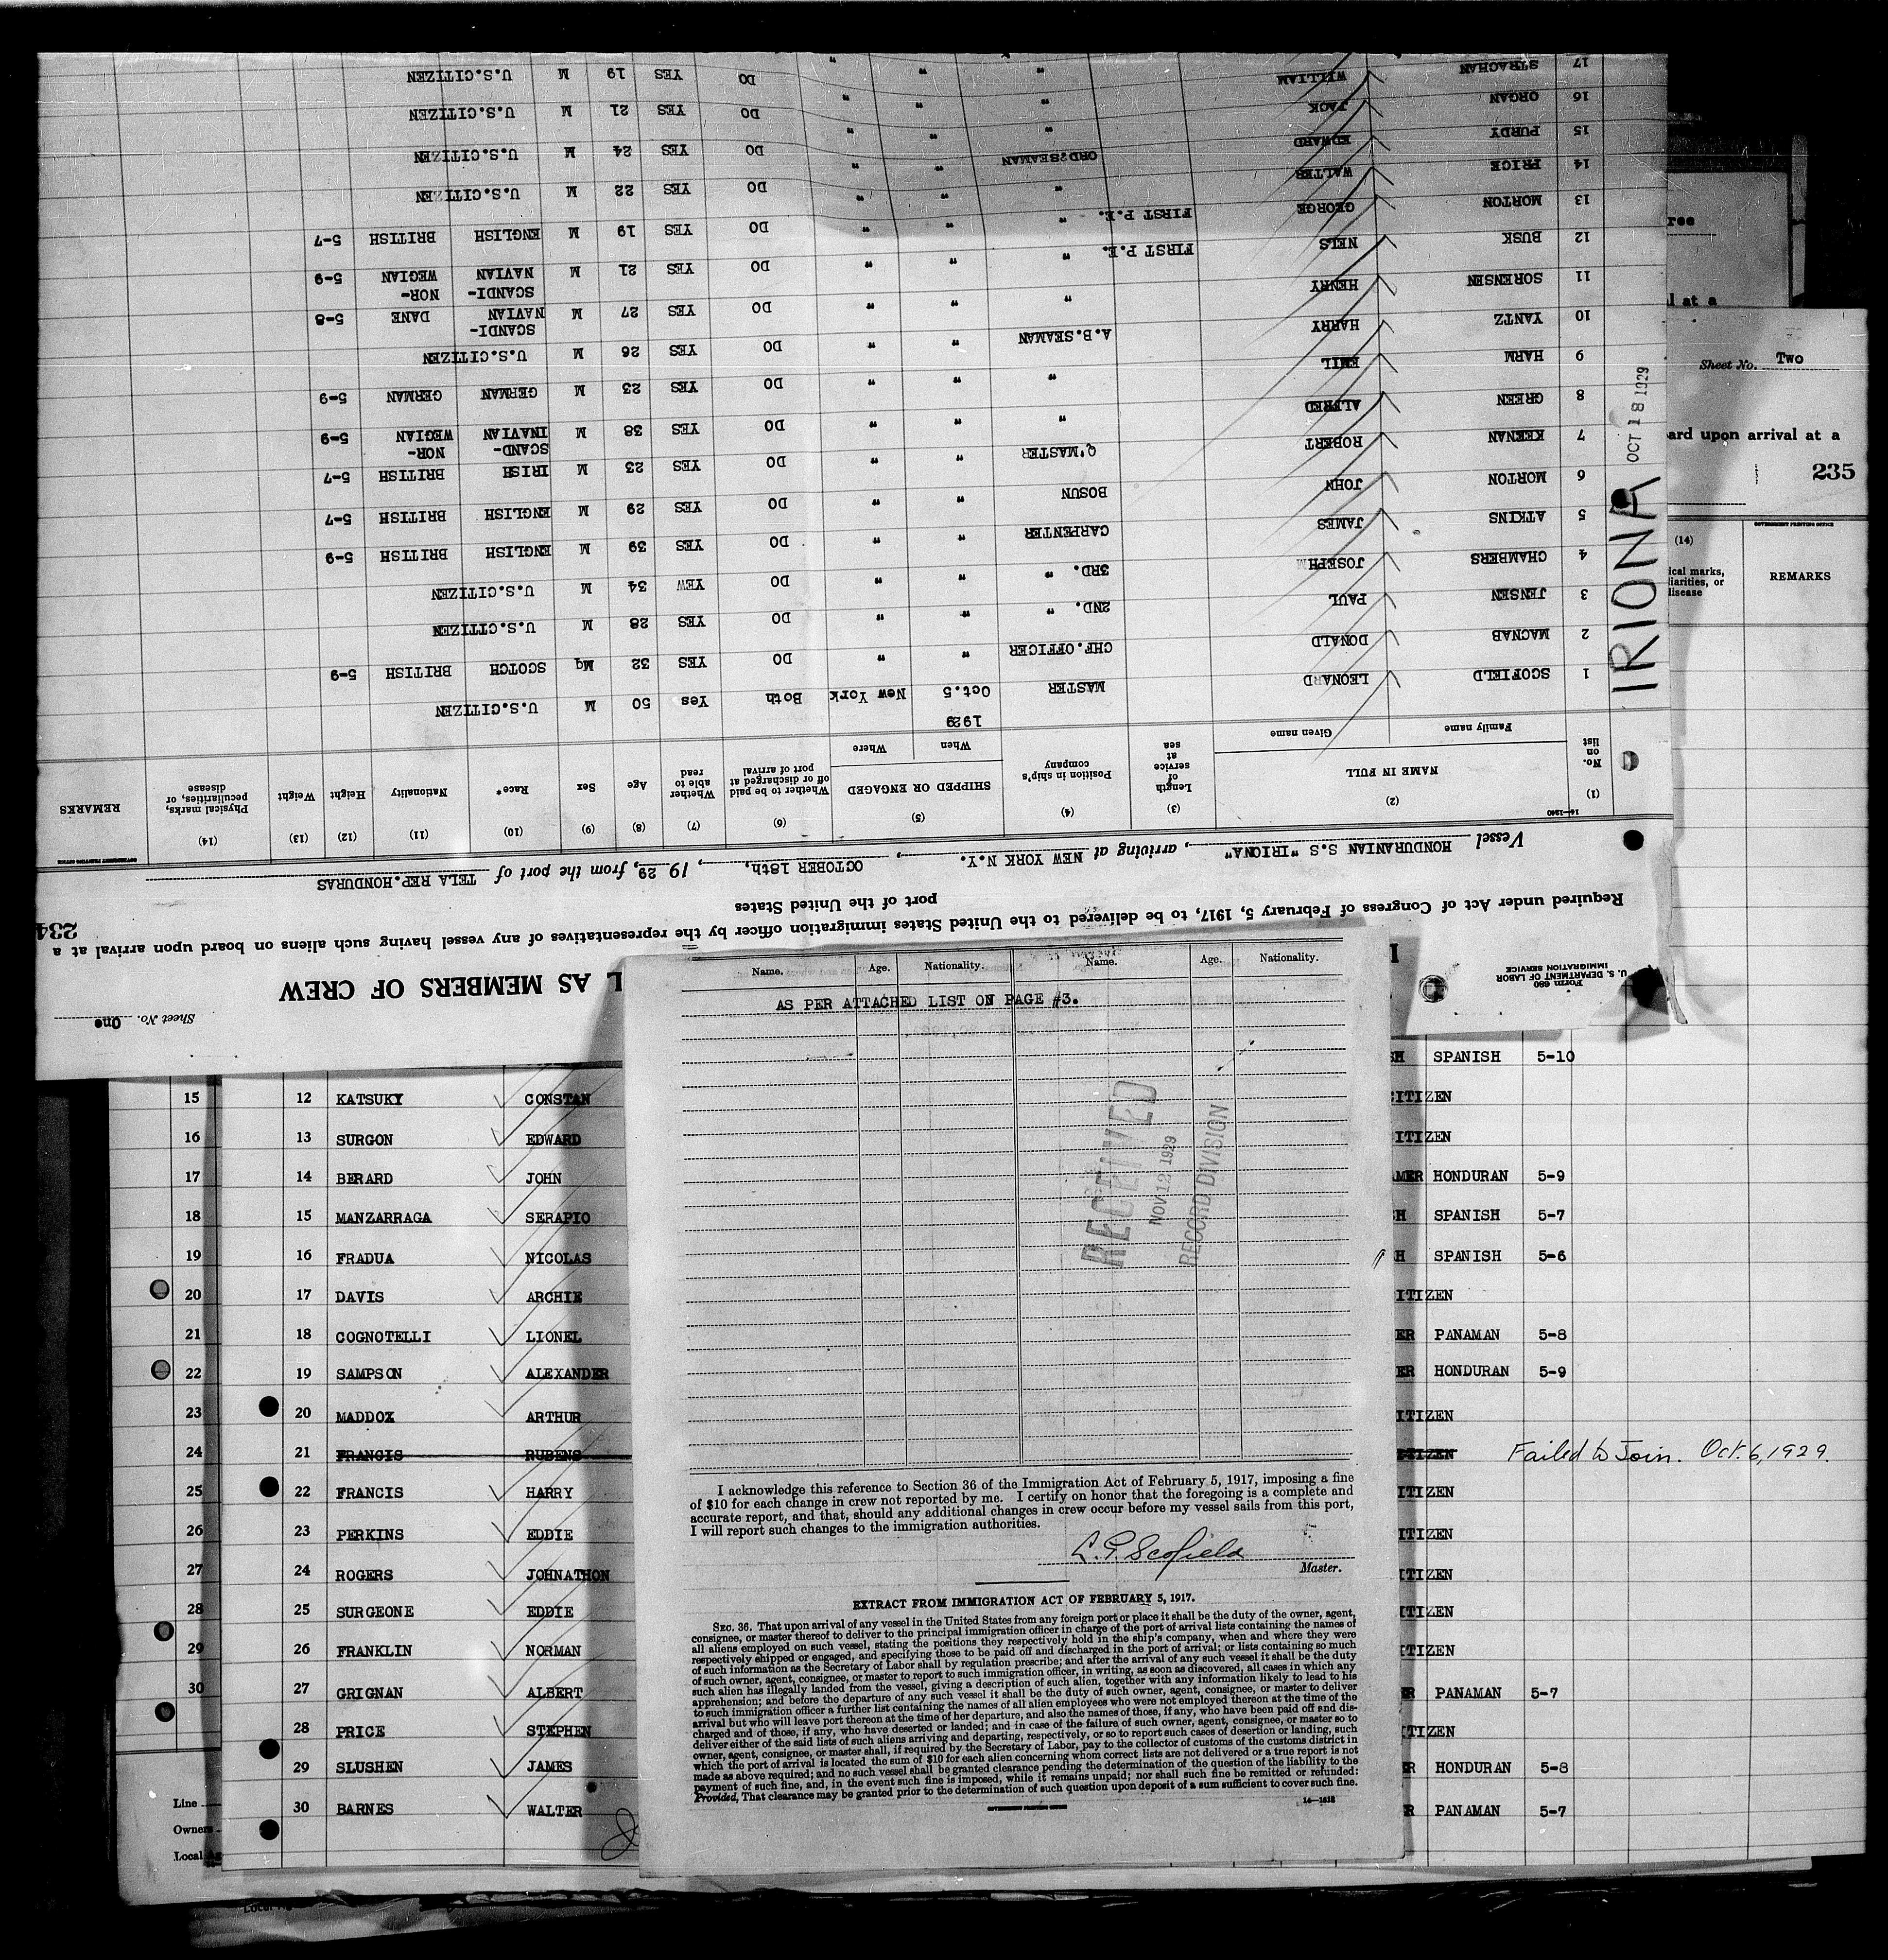 Sheet No. One
L AS MEMBERS OF CREW
Form 680
U. S. DEPARTMENT OF LABOR
IMMIGRATION SERVICE
234
Required under Act of Congress of February 5, 1917, to be delivered to the United States immigration officer by the representatives of any vessel having such aliens on board upon arrival at a
port of the United States
Vessel HONDURANIAN S.S "IRIONA", arriving at NEW YORK N.Y., OCTOBER 18th, 19 29, from the port of TELA REP.HONDURAS
14—1240
GOVERNMENT PRINTING OFFICE
(1) (2) (3) (4) (5) (6) (7) (8) (9) (10) (11) (12) (13) (14)
No. on list NAME IN FULL Family name Given name Length of service at sea Position in ship's company SHIPPED OR ENGAGED When Where Whether to be paid off or discharged at port of arrival Whether able to read Age Sex Race* Nationality Height Weight Physical marks, peculiarities, or disease REMARKS
1929
1 SCOFIELD LEONARD MASTER Oct.5 New York Both Yes 50 M U.S.CITIZEN
2 MACNAB DONALD CHF.OFFICER " " DO YES 32 Mq SCOTCH BRITISH 5-9
3 JENSEN PAUL 2ND. " " " DO YES 28 M U.S.CITIZEN
4 CHAMBERS JOSEPH 3RD. " " " DO YEW 34 M U.S.CITIZEN
5 ATKINS JAMES CARPENTER " " DO YES 39 M ENGLISH BRITISH 5-9
6 MORTON JOHN BOSUN " " DO YES 29 M ENGLISH BRITISH 5-7
7 KEENAN ROBERT Q'MASTER " " DO YES 23 M IRISH BRITISH 5-7
8 GREEN ALFRED " " " DO YES 38 M SCAND-INAVIAN NOR-WEGIAN 5-9
9 HARM EMIL " " " DO YES 23 M GERMAN GERMAN 5-9
10 YANTZ HARRY A.B.SEAMAN " " DO YES 26 M U.S.CITIZEN
11 SORENSEN HENRY " " " DO YES 27 M SCANDI-NAVIAN DANE 5-8
12 BUSK NELS FIRST P.E. " " " DO YES 21 M SCANDI-NAVIAN NOR-WEGIAN 5-9
13 MORTON GEORGE FIRST P.E. " " " DO YES 19 M ENGLISH BRITISH 5-7
14 PRICE WALTER " " " DO YES 22 M U.S.CITIZEN
15 PURDY EDWARD ORD?SEAMAN " " DO YES 24 M U.S.CITIZEN
16 ORGAN JACK " " " DO YES 21 M U.S.CITIZEN
17 STRACHAN WILLIAM " " " DO YES 19 M U.S.CITIZEN
IRIONA OCT 18 1929
ree
l at a
Sheet No. Two
ard upon arrival at a
235
GOVERNMENT PRINTING OFFICE
(14)
ical marks,
liarities, or
disease
REMARKS
SH SPANISH 5-10
15 12 KATSUKY CONSTAN CITIZEN
16 13 SURGON EDWARD ITIZEN
17 14 BERARD JOHN AMER HONDURAN 5-9
18 15 MANZARRAGA SERAPIO H SPANISH 5-7
19 16 FRADUA NICOLAS H SPANISH 5-6
20 17 DAVIS ARCHIE ITIZEN
21 18 COGNOTELLI LIONEL ER PANAMAN 5-8
22 19 SAMPSON ALEXANDER ER HONDURAN 5-9
23 20 MADDOX ARTHUR ITIZEN
24 21 FRANCIS RUBENS ITIZEN Failed to Join. Oct. 6, 1929.
25 22 FRANCIS HARRY ITIZEN
26 23 PERKINS EDDIE ITIZEN
27 24 ROGERS JOHNATHON ITIZEN
28 25 SURGEONE EDDIE ITIZEN
29 26 FRANKLIN NORMAN ITIZEN
30 27 GRIGNAN ALBERT R PANAMAN 5-7
28 PRICE STEPHEN ITIZEN
29 SLUSHEN JAMES R HONDURAN 5-8
30 BARNES WALTER R PANAMAN 5-7
Line
Owners
Local
Name. Age. Nationality. Name. Age. Nationality.
AS PER ATTACHED LIST ON PAGE #3.
RECEIVED
NOV 12 1929
RECORD DIVISION
I acknowledge this reference to Section 36 of the Immigration Act of February 5, 1917, imposing a fine
of $10 for each change in crew not reported by me. I certify on honor that the foregoing is a complete and
accurate report, and that, should any additional changes in crew occur before my vessel sails from this port,
I will report such changes to the immigration authorities.
L. P. Scofield
Master.
EXTRACT FROM IMMIGRATION ACT OF FEBRUARY 5, 1917.
SEC. 36. That upon arrival of any vessel in the United States from any foreign port or place it shall be the duty of the owner, agent,
consignee, or master thereof to deliver to the principal immigration officer in charge of the port of arrival lists containing the names of
all aliens employed on such vessel, stating the positions they respectively hold in the ship's company, when and where they were
respectively shipped or engaged, and specifying those to be paid off and discharged in the port of arrival; or lists containing so much
of such information as the Secretary of Labor shall by regulation prescribe; and after the arrival of any such vessel it shall be the duty
of such owner, agent, consignee, or master to report to such immigration officer, in writing, as soon as discovered, all cases in which any
such alien has illegally landed from the vessel, giving a description of such alien, together with any information likely to lead to his
apprehension; and before the departure of any such vessel it shall be the duty of such owner, agent, consignee, or master to deliver
to such immigration officer a further list containing the names of all alien employees who were not employed thereon at the time of the
arrival but who will leave port thereon at the time of her departure, and also the names of those, if any, who have been paid off and dis-
charged and of those, if any, who have deserted or landed; and in case of the failure of such owner, agent, consignee, or master so to
deliver either of the said lists of such aliens arriving and departing, respectively, or so to report such cases of desertion or landing, such
owner, agent, consignee, or master shall, if required by the Secretary of Labor, pay to the collector of customs of the customs district in
which the port of arrival is located the sum of $10 for each alien concerning whom correct lists are not delivered or a true report is not
made as above required; and no such vessel shall be granted clearance pending the determination of the question of the liability to the
payment of such fine, and, in the event such fine is imposed, while it remains unpaid; nor shall such fine be remitted or refunded:
Provided, That clearance may be granted prior to the determination of such question upon deposit of a sum sufficient to cover such fine.
GOVERNMENT PRINTING OFFICE
14—1638